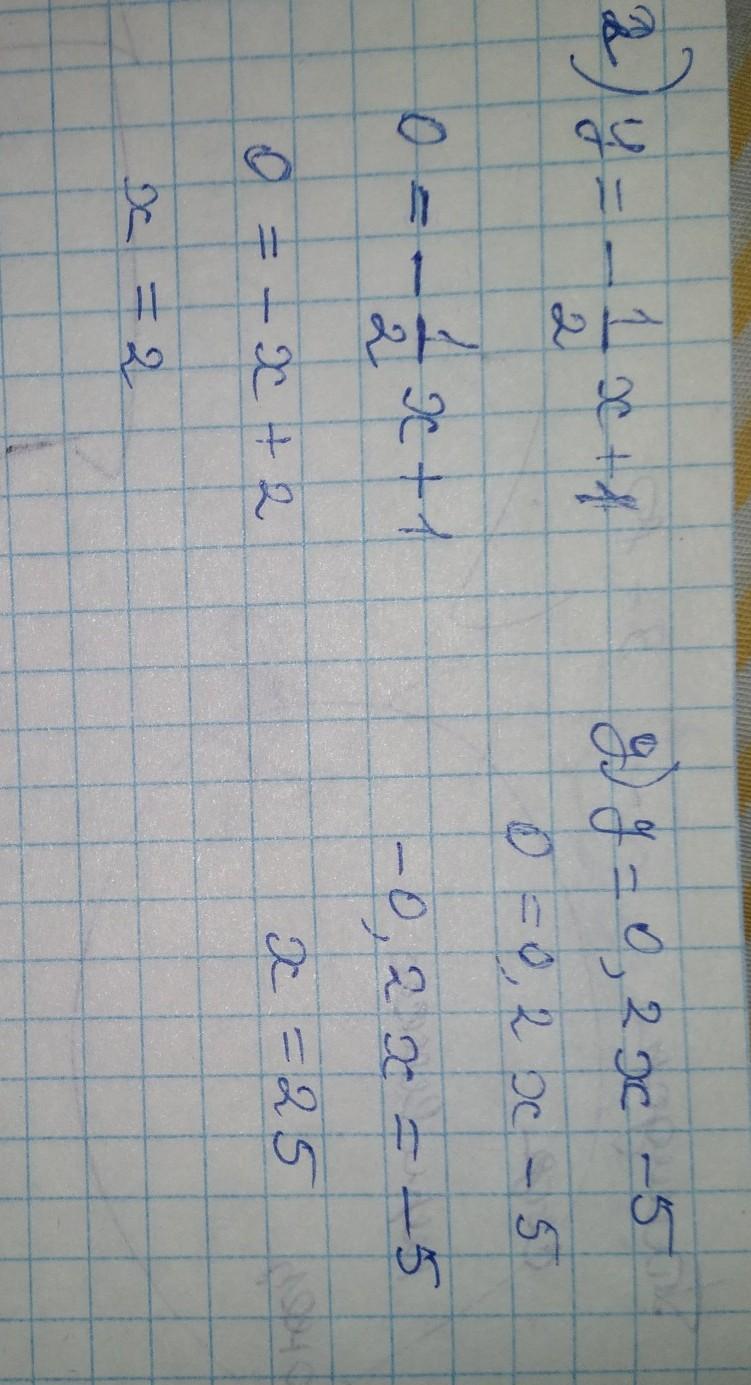 2) y = -1/2 x + 1
0 = -1/2 x + 1
0 = -x + 2
x = 2
д) y = 0,2x - 5
0 = 0,2x - 5
-0,2x = -5
x = 25